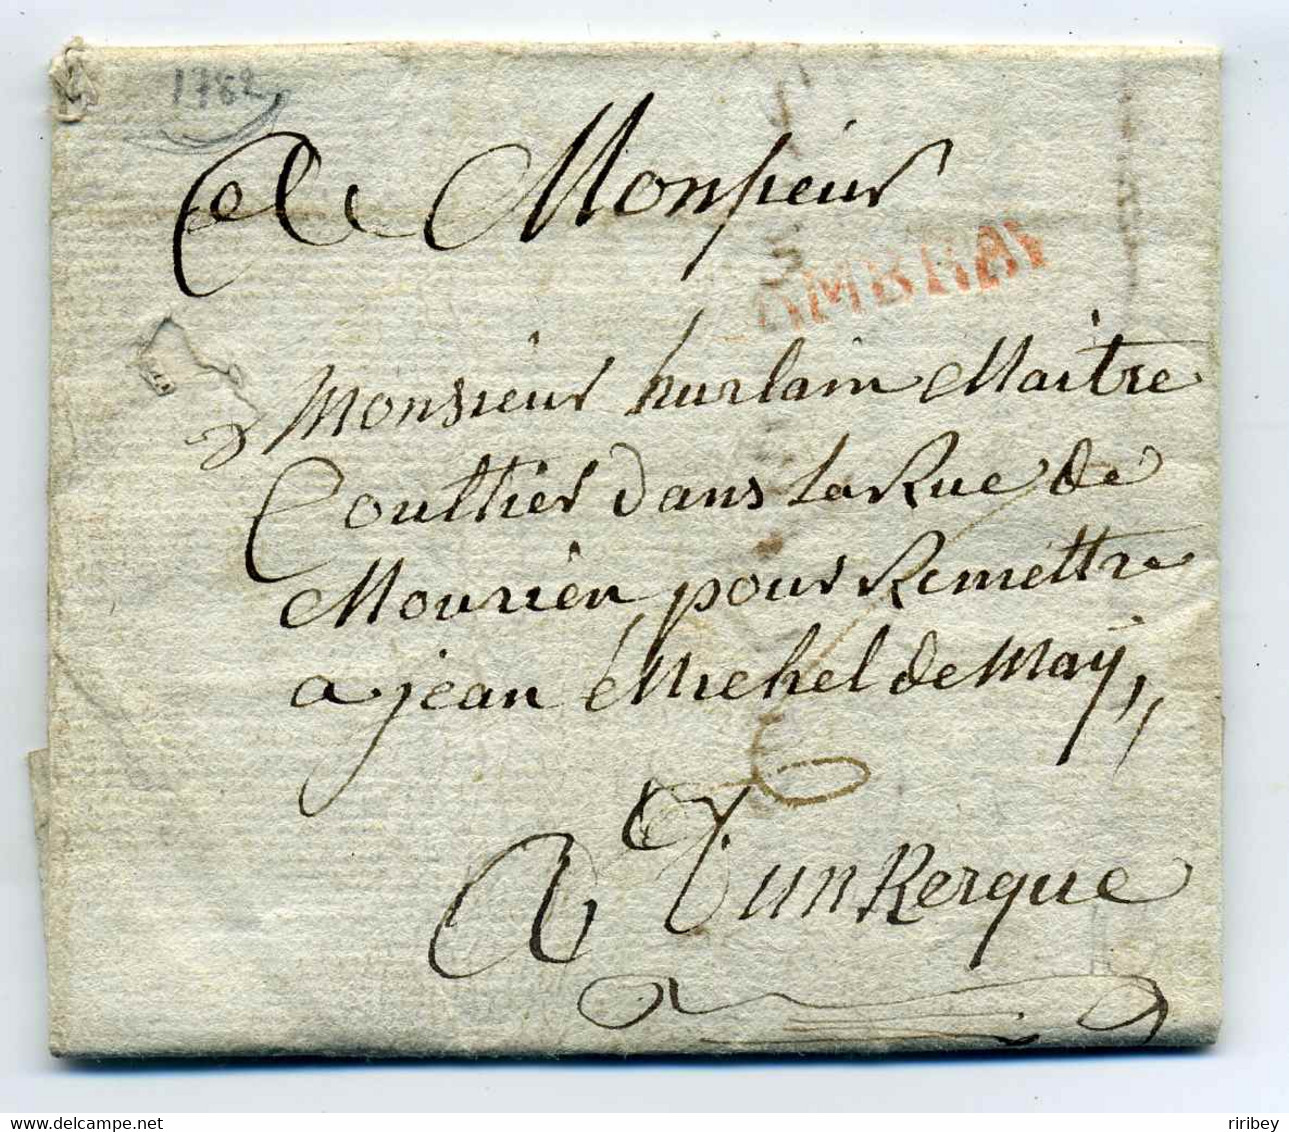 1782
A Monsieur
AMBRAY
Monsieur hurlain Maitre
Couttier dans la Rue de
Mourien pour Remettre
a jean Michel de Maÿ,,
6
A Dunkerque
delcampe.net
riribey